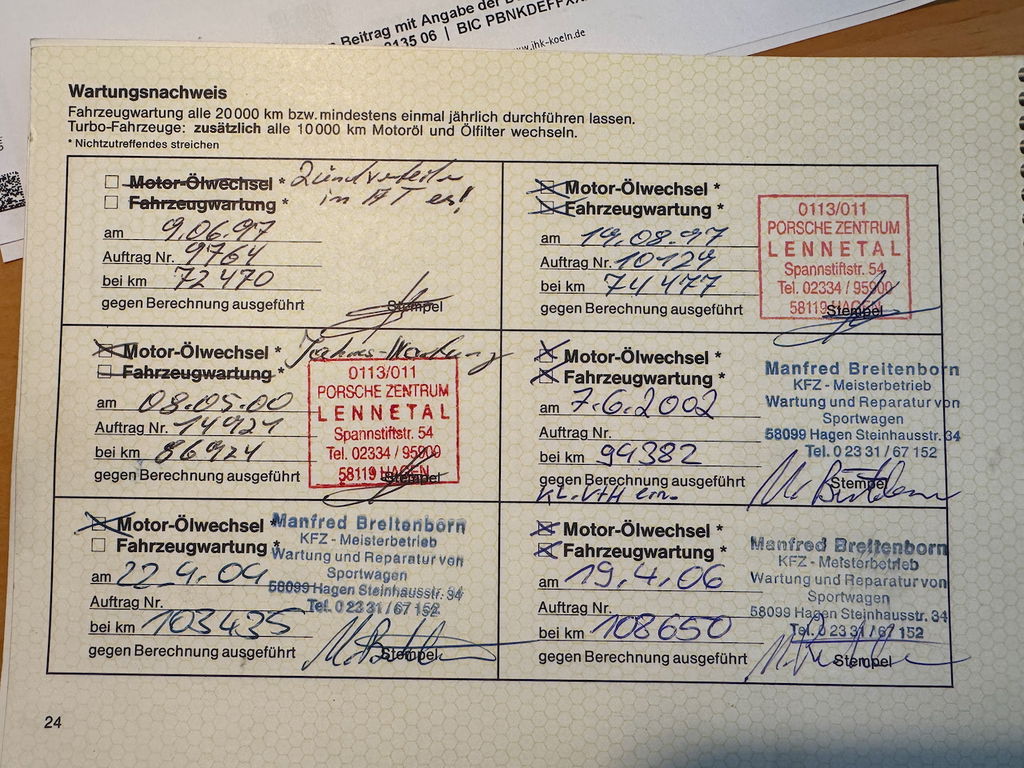 Beitrag mit Angabe der
3135 06 | BIC PBNKDEFFXX
www.ihk-koeln.de
Wartungsnachweis
Fahrzeugwartung alle 20000 km bzw. mindestens einmal jährlich durchführen lassen.
Turbo-Fahrzeuge: zusätzlich alle 10000 km Motoröl und Ölfilter wechseln.
* Nichtzutreffendes streichen
Motor-Ölwechsel * Zündverteiler
Fahrzeugwartung * in AT er!
am 9.06.97
Auftrag Nr. 9764
bei km 72470
gegen Berechnung ausgeführt
Stempel
Motor-Ölwechsel *
Fahrzeugwartung *
am 19.08.97
Auftrag Nr. 10129
bei km 74477
gegen Berechnung ausgeführt
0113/011
PORSCHE ZENTRUM
LENNETAL
Spannstiftstr. 54
Tel. 02334 / 95900
58119 HAGEN
Stempel
Motor-Ölwechsel * Jahres-Wartung
Fahrzeugwartung *
am 08.05.00
Auftrag Nr. 14921
bei km 86924
gegen Berechnung ausgeführt
0113/011
PORSCHE ZENTRUM
LENNETAL
Spannstiftstr. 54
Tel. 02334 / 95900
58119 HAGEN
Stempel
Motor-Ölwechsel *
Fahrzeugwartung *
am 7.6.2002
Auftrag Nr.
bei km 94382
gegen Berechnung ausgeführt
Manfred Breitenborn
KFZ - Meisterbetrieb
Wartung und Reparatur von
Sportwagen
58099 Hagen Steinhausstr. 34
Tel. 0 23 31 / 67 152
Stempel
Motor-Ölwechsel *
Fahrzeugwartung *
am 22.4.04
Auftrag Nr.
bei km 103435
gegen Berechnung ausgeführt
Manfred Breitenborn
KFZ - Meisterbetrieb
Wartung und Reparatur von
Sportwagen
58099 Hagen Steinhausstr. 34
Tel. 0 23 31 / 67 152
Stempel
Motor-Ölwechsel *
Fahrzeugwartung *
am 19.4.06
Auftrag Nr.
bei km 108650
gegen Berechnung ausgeführt
Manfred Breitenborn
KFZ - Meisterbetrieb
Wartung und Reparatur von
Sportwagen
58099 Hagen Steinhausstr. 34
Tel. 0 23 31 / 67 152
Stempel
24